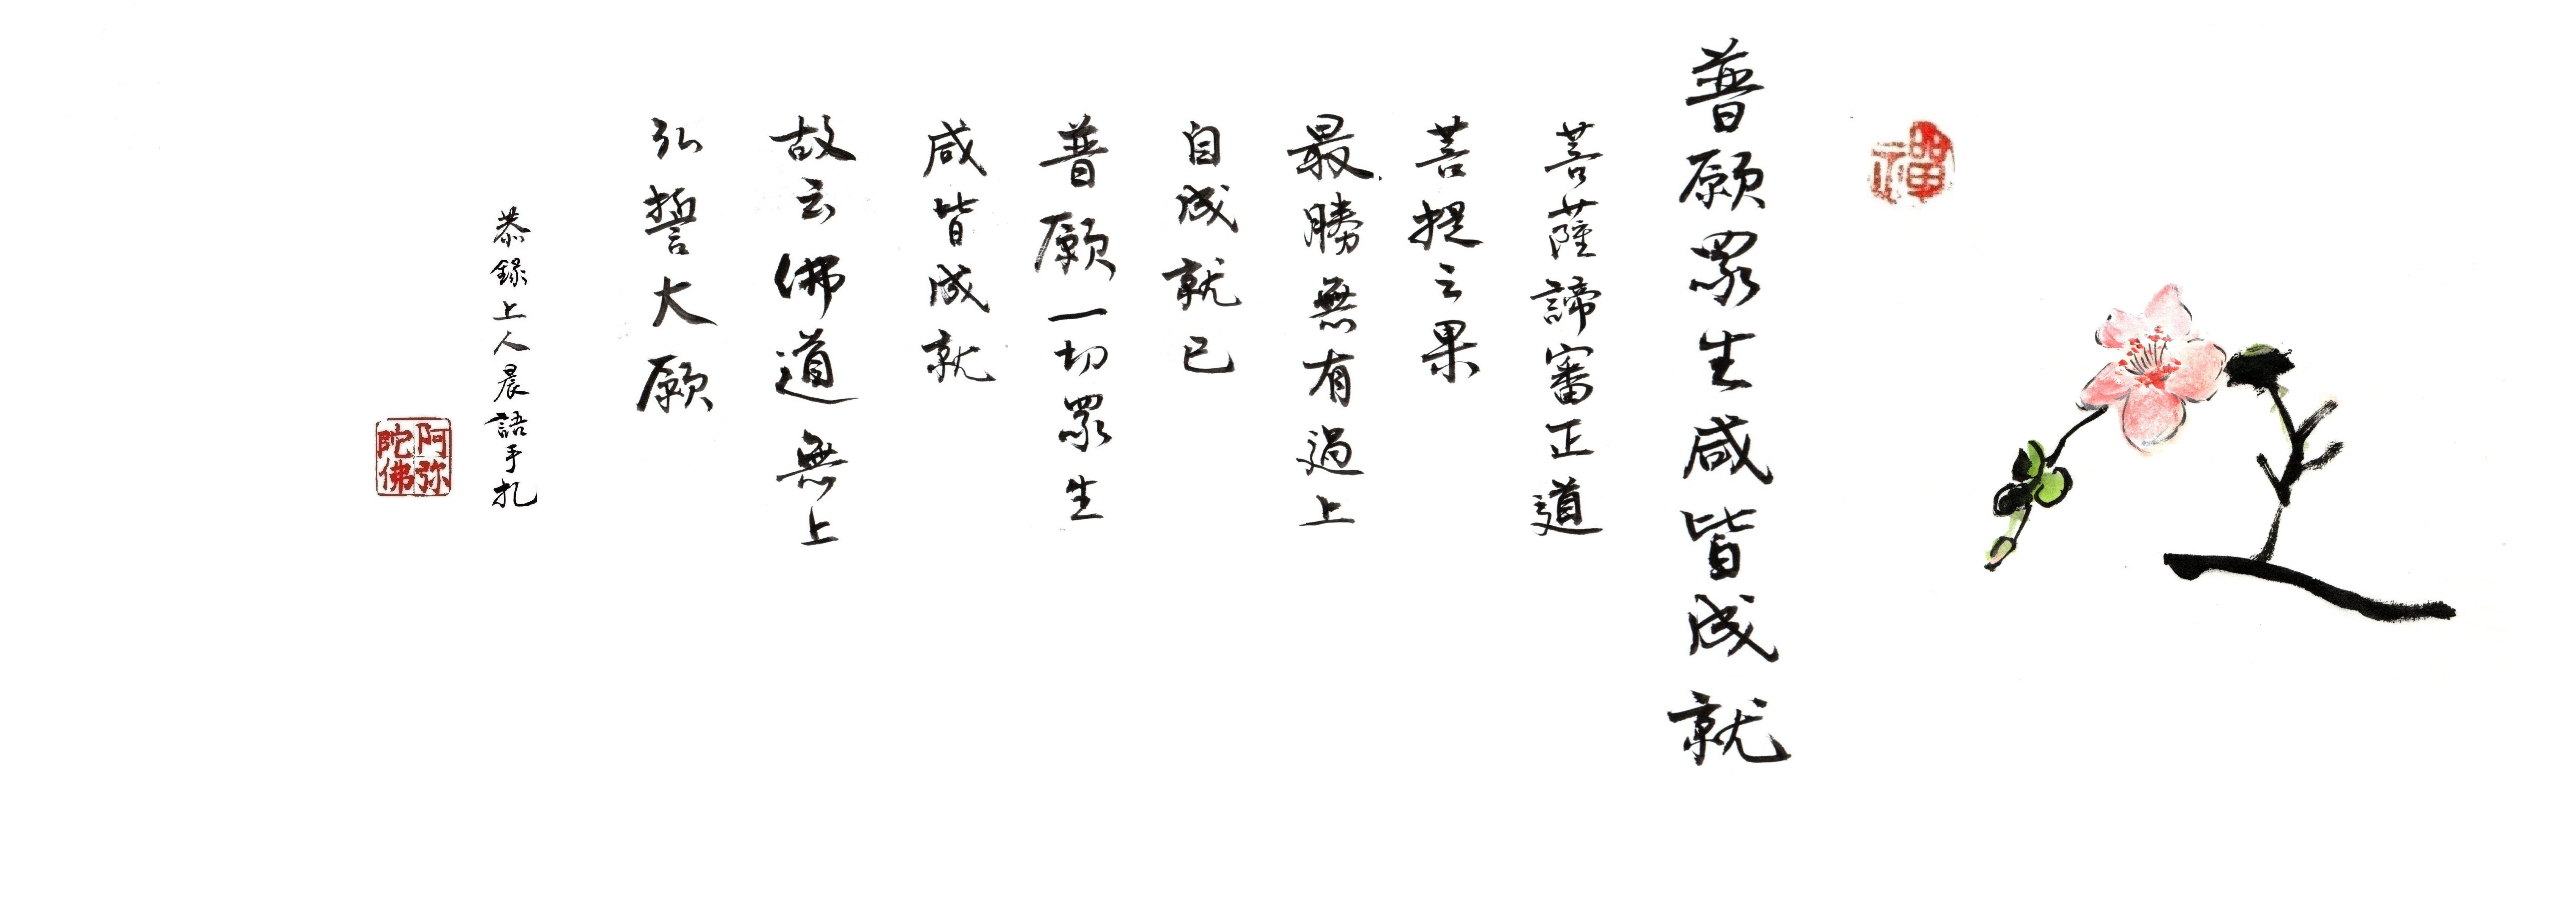 禪
普願眾生咸皆成就
菩薩諦審正道
菩提之果
最勝無有過上
自成就已
普願一切眾生
咸皆成就
故云佛道無上
弘誓大願
恭錄上人晨語手札
阿弥陀佛